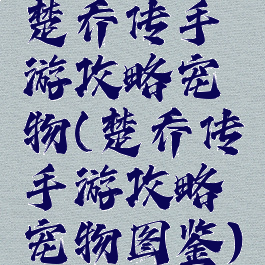 楚乔传手
游攻略宠
物(楚乔传
手游攻略
宠物图鉴)